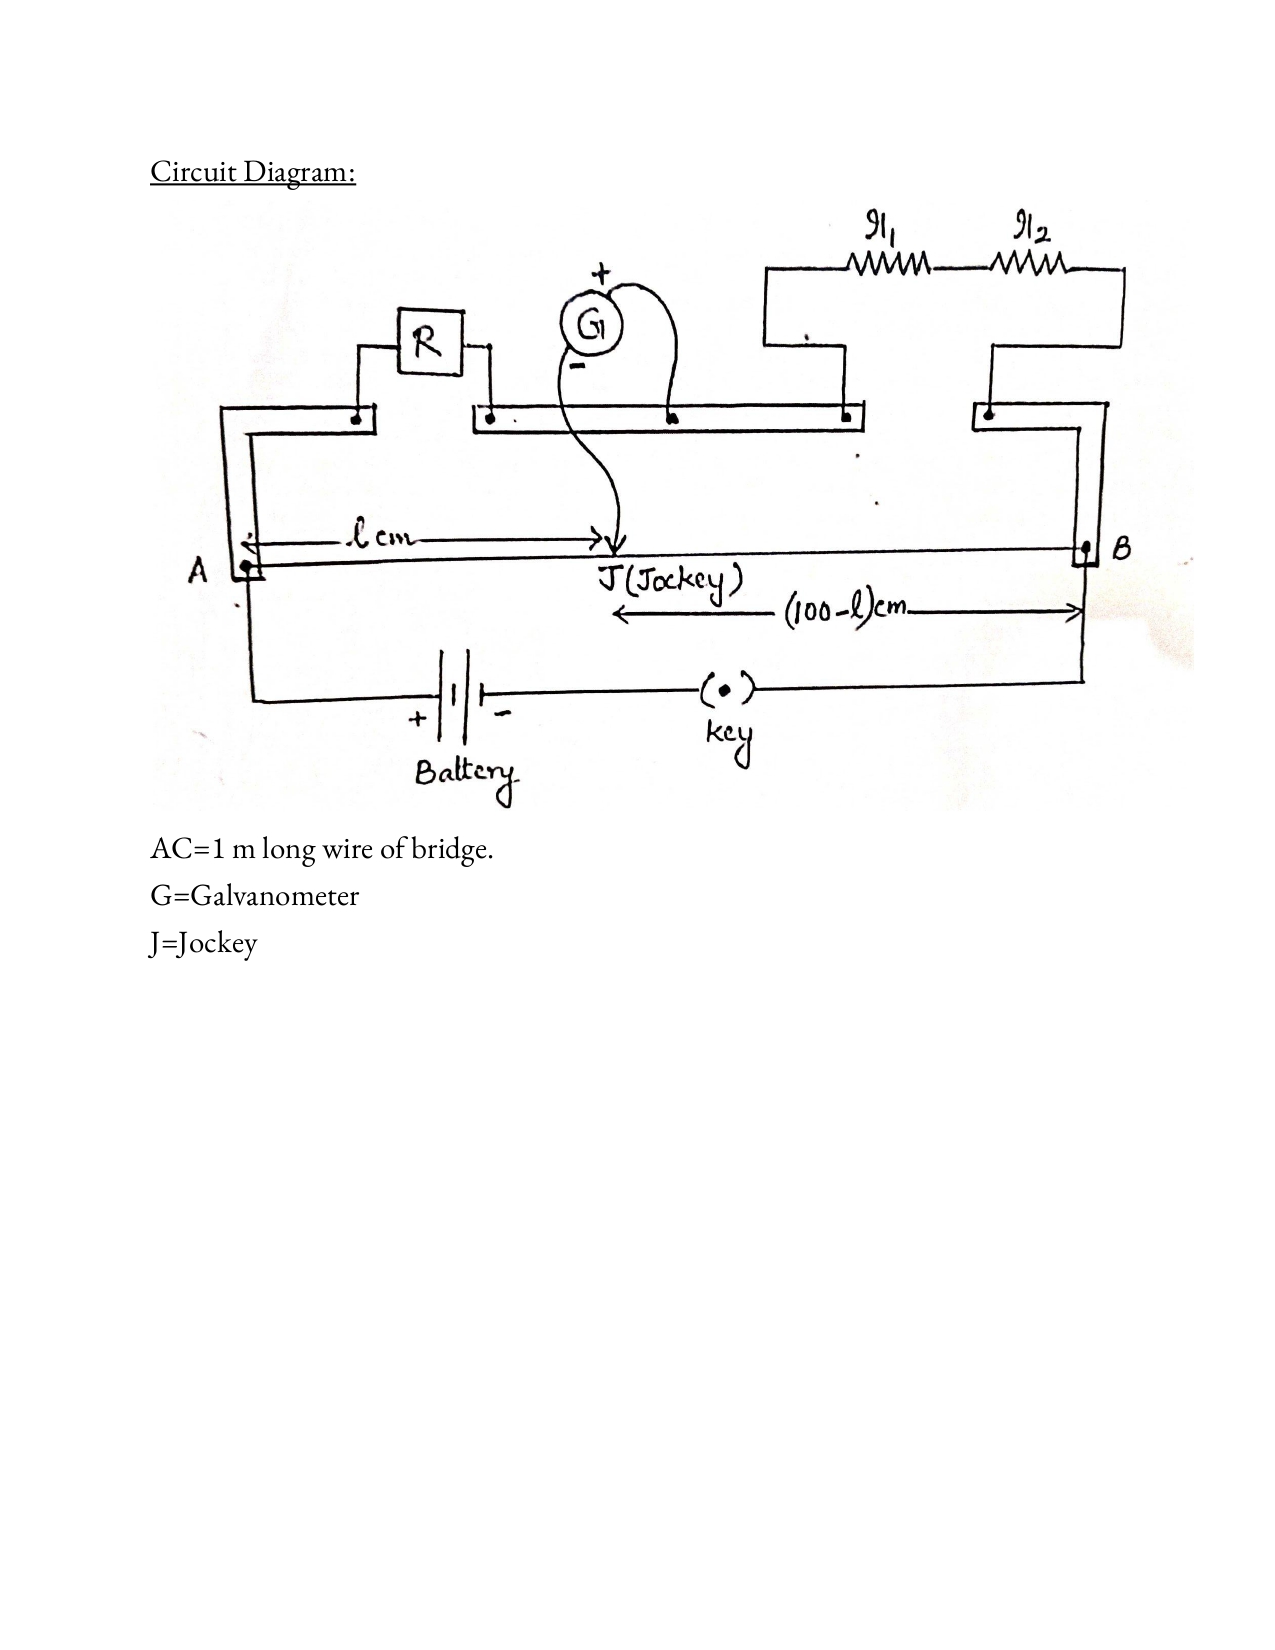 Circuit Diagram:
r1 r2
+
R G
-
l cm
A B
J (Jockey)
(100-l)cm
+ -
key
Battery
AC=1 m long wire of bridge.
G=Galvanometer
J=Jockey